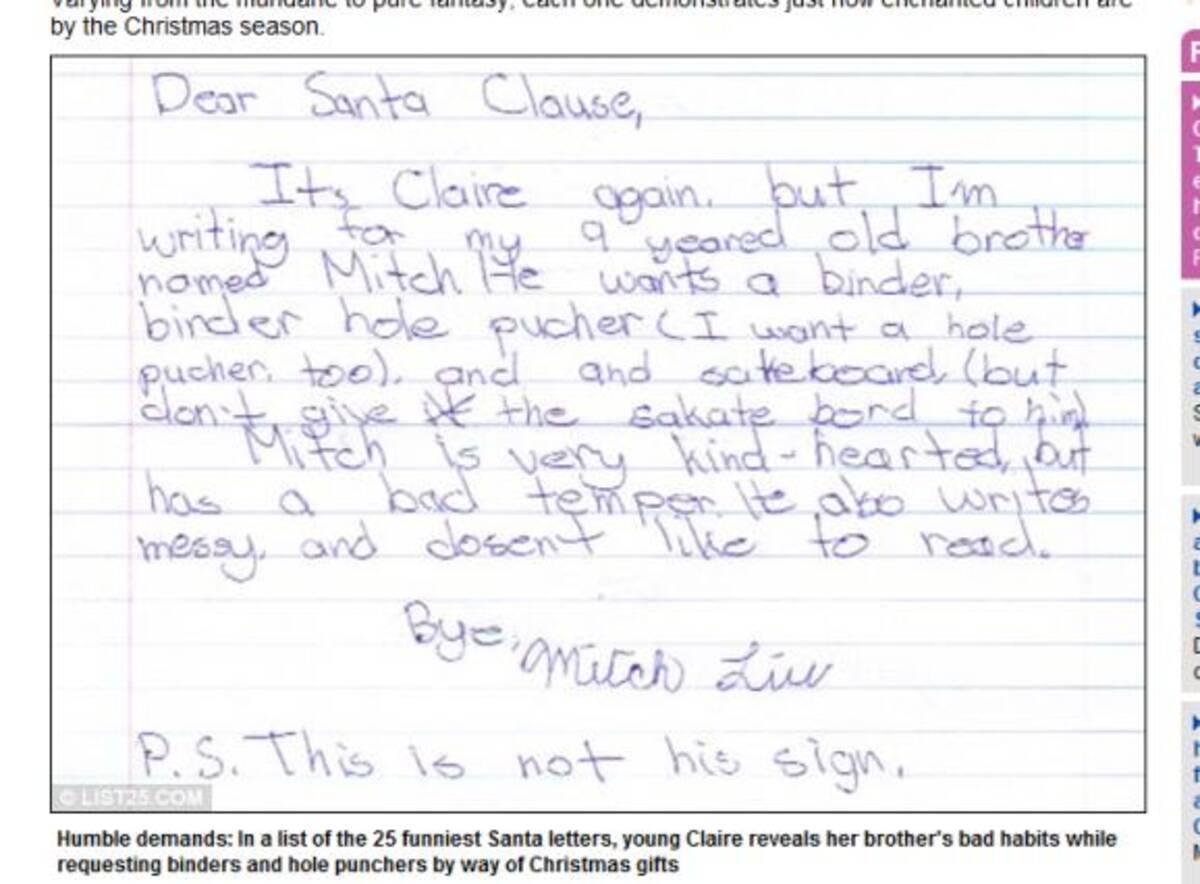 by the Christmas season.
Dear Santa Clause,
Its Claire again. but I'm
writing for my 9 yeared old brother
named Mitch He wants a binder,
binder hole pucher (I want a hole
pucher, too). and and sakeboard, (but
don't give the sakate bord to him)
Mitch is very kind-hearted, but
has a bad temper. He also writes
messy, and dosen't like to read.
Bye, Mitch Liu
P.S. This is not his sign.
© LIST25.COM
Humble demands: In a list of the 25 funniest Santa letters, young Claire reveals her brother's bad habits while
requesting binders and hole punchers by way of Christmas gifts